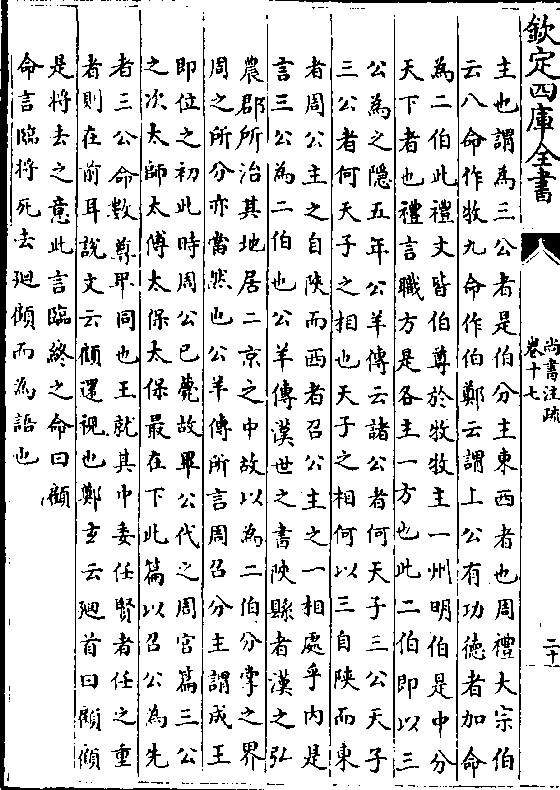 欽定四庫全書
尚書注疏
卷十七
二十
主也謂為三公者是伯分主東西者也周禮大宗伯
云八命作牧九命作伯鄭云謂上公有功德者加命
為二伯此禮文皆伯尊於牧牧主一州明伯是中分
天下者也禮言職方是各主一方也此二伯即以三
公為之隱五年公羊傳云諸公者何天子三公天子
三公者何天子之相也天子之相何以三自陝而東
者周公主之自陝而西者召公主之一相處乎內是
言三公為二伯也公羊傳漢世之書陝縣者漢之弘
農郡所治其地居二京之中故以為二伯分掌之界
周之所分亦當然也公羊傳所言周召分主謂成王
即位之初此時周公已薨故畢公代之周官篇三公
之次太師太傅太保太保最在下此篇以召公為先
者三公命數尊卑同也王就其中委任賢者任之重
者則在前耳說文云顧還視也鄭玄云廻首曰顧顧
是將去之意此言臨終之命曰顧
命言臨將死去廻顧而為語也